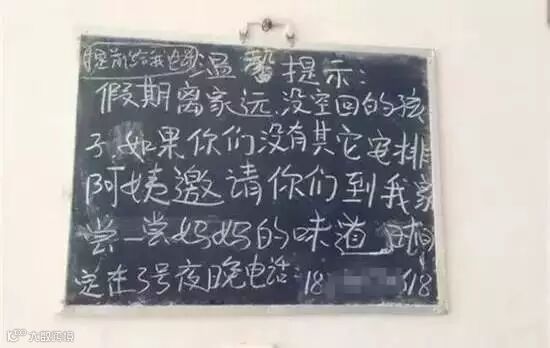 提前给我电话 温馨提示:
假期离家远、没空回的孩
子,如果你们没有其它安排
阿姨邀请你们到我家
尝一尝妈妈的味道 时间
定在3号夜晚电话:18 618